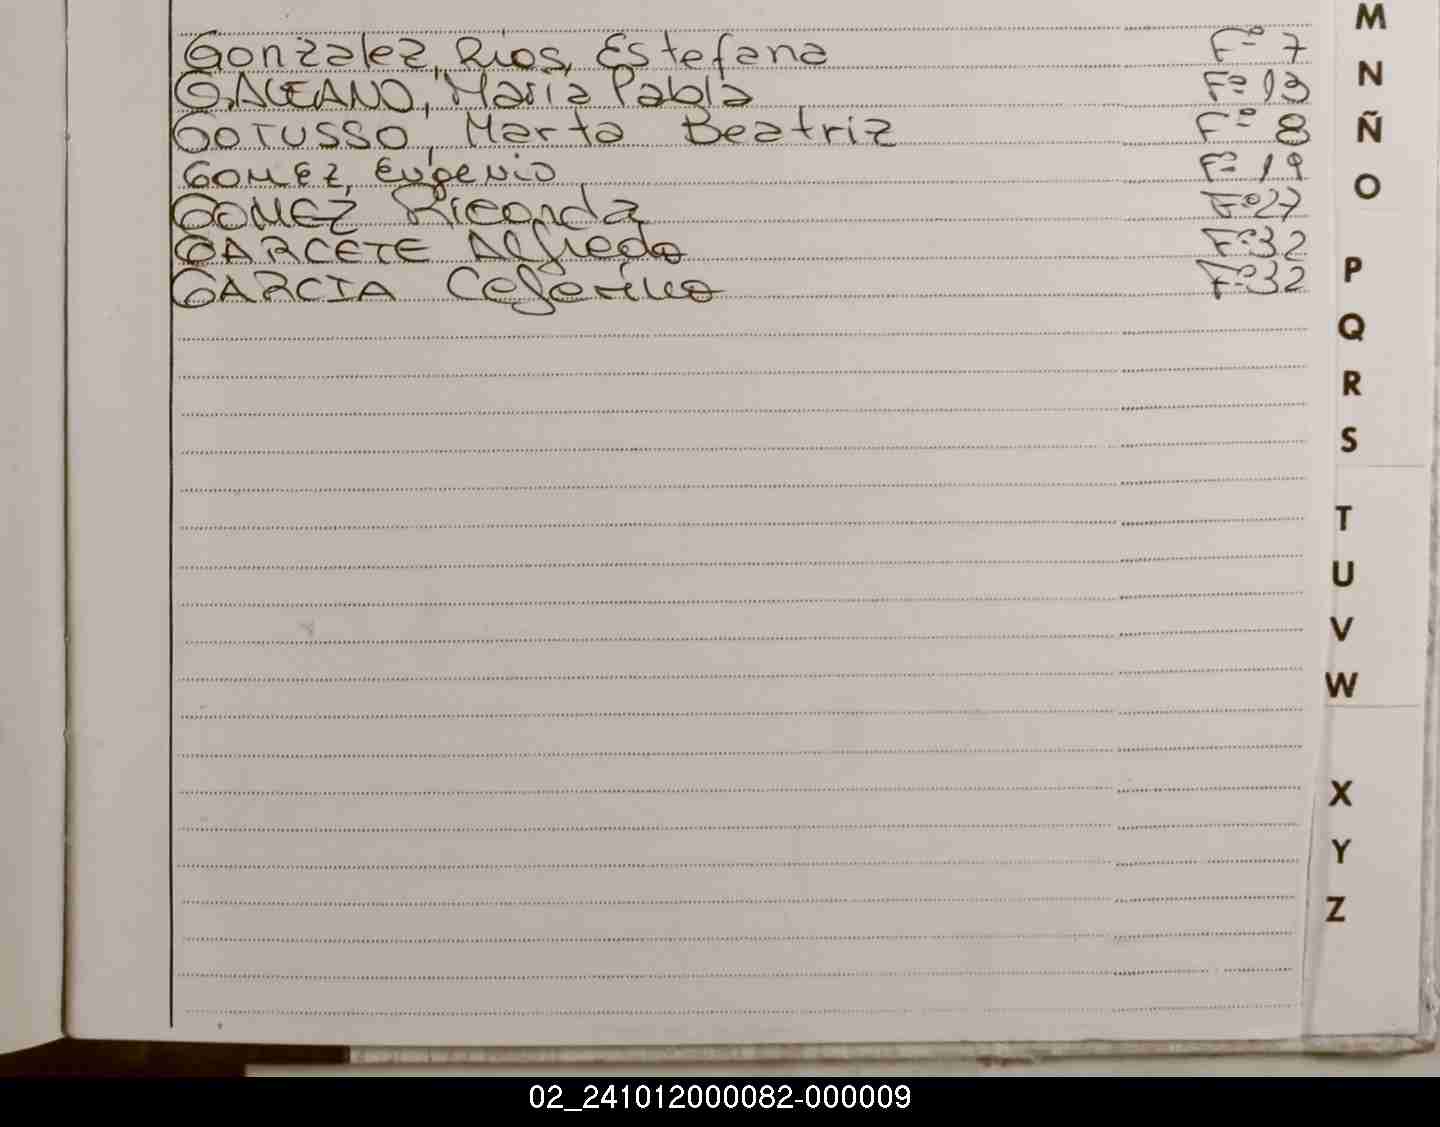 Gonzalez, Rios, Estefana F° 7
GALEANO, Maria Pabla F° 13
GOTUSSO, Marta Beatriz F° 8
GOMEZ, Eugenio F° 19
GOMEZ Ricarda F° 27
GARCETE Alfredo F° 32
GARCIA Ceferino F° 32
M
N
Ñ
O
P
Q
R
S
T
U
V
W
X
Y
Z
02_241012000082-000009